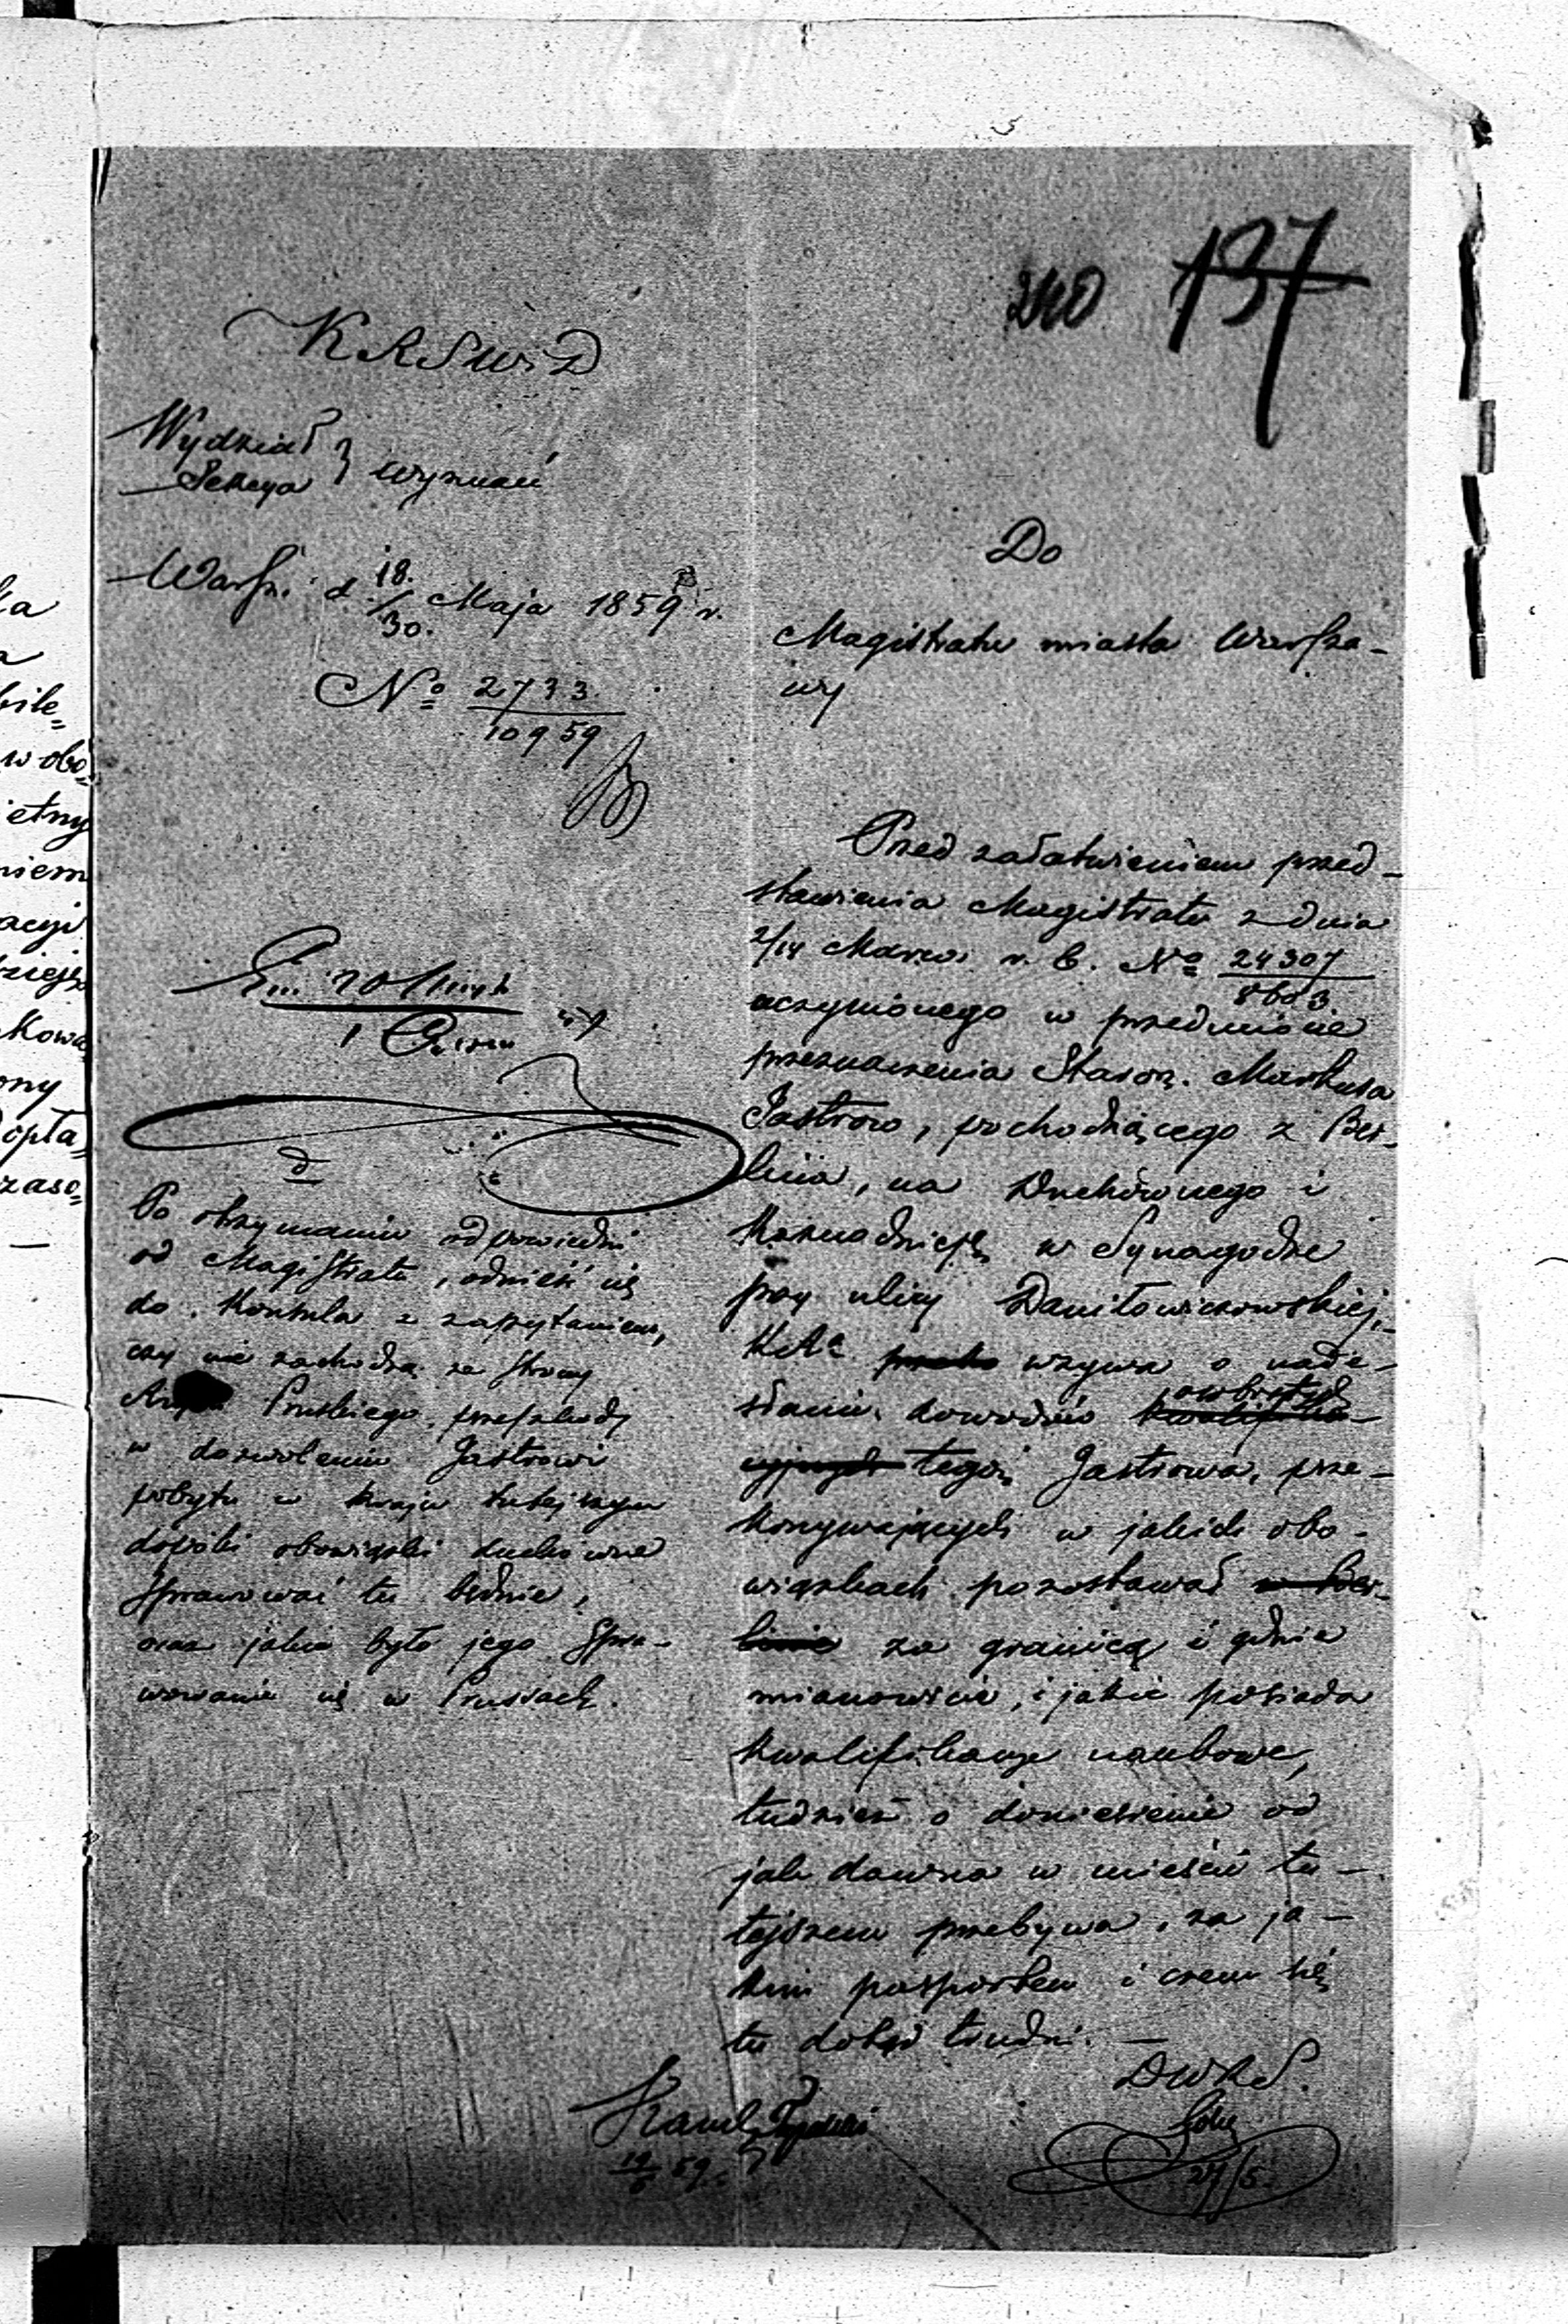 240 137
KRSWiD
Wydział
Sekcya } wyznań
Warsz. d. 18./30. Maja 1859 r.
No 2733/10959
Do
Magistratu miasta Warsza-
wy
Przed załatwieniem przed-
stawienia Magistratu z dnia
2/14 Marca r. b. No 24307/8603
uczynionego w przedmiocie
przeznaczenia Staroz. Markusa
Jastrow, pochodzącego z Ber-
lina, na Duchównego i
Kaznodzieję w Synagodze
przy ulicy Daniłowiczowskiej,
wzywa o nade-
słanie dowodów
tegoż Jastrowa, prze-
konywających w jakich obo-
wiązkach pozostawał w Ber-
linie za granicą i gdzie
mianowicie, i jakie posiada
kwalifikacye naukowe,
tudzież o doniesienie od
jak dawna w mieście tu-
tejszem przebywa, za ja-
kim paszportem i czem się
tu dotąd trudni. —
DWRS.
27/5.
59.
d
Po otrzymaniu odpowiedzi
od Magistratu, odnieść się
do Konsula z zapytaniem,
czy nie zachodzą ze strony
Pruskiego, przeszkody
w dozwoleniu Jastrowi
pobytu w kraju tutejszym
dopóki obowiązki duchówne
sprawować tu będzie,
oraz jakie było jego spra-
wowanie się w Prusiech.